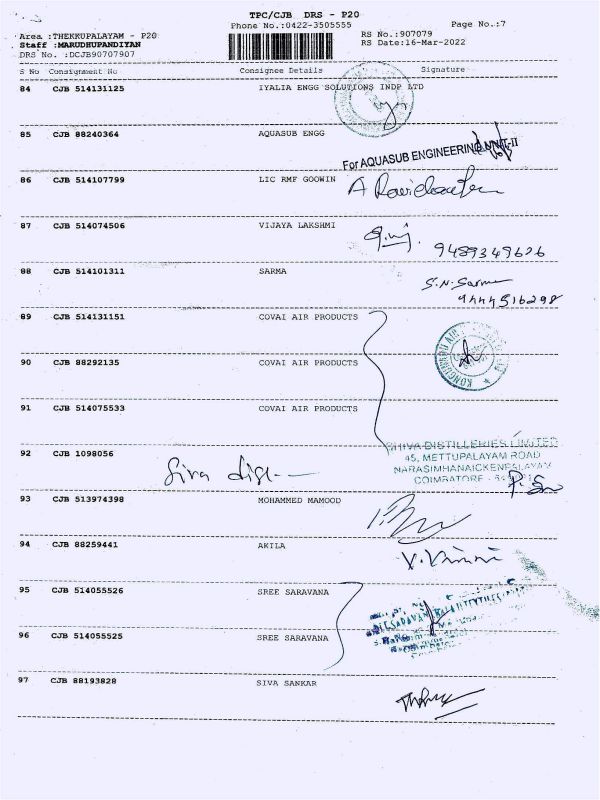 TPC/CJB DRS - P20
Phone No.:0422-3505555
Page No.:7
Area :THEKKUPALAYAM - P20
Staff :MARUDHUPANDIYAN
DRS No. :DCJB90707907
RS No.:907079
RS Date:16-Mar-2022
S No Consignment No Consignee Details Signature
84 CJB 514131125 IYALIA ENGG SOLUTIONS INDP LTD
85 CJB 88240364 AQUASUB ENGG
For AQUASUB ENGINEERING UNIT-II
86 CJB 514107799 LIC RMF GOOWIN
87 CJB 514074506 VIJAYA LAKSHMI
9489349626
88 CJB 514101311 SARMA
S.N. Sarma
9444516298
89 CJB 514131151 COVAI AIR PRODUCTS
90 CJB 88292135 COVAI AIR PRODUCTS
91 CJB 514075533 COVAI AIR PRODUCTS
92 CJB 1098056
SHIVA DISTILLERIES LIMITED
45, METTUPALAYAM ROAD
NARASIMHANAICKENPALAYAM
COIMBATORE
93 CJB 513974398 MOHAMMED MAMOOD
94 CJB 88259441 AKILA
95 CJB 514055526 SREE SARAVANA
96 CJB 514055525 SREE SARAVANA
97 CJB 88193828 SIVA SANKAR